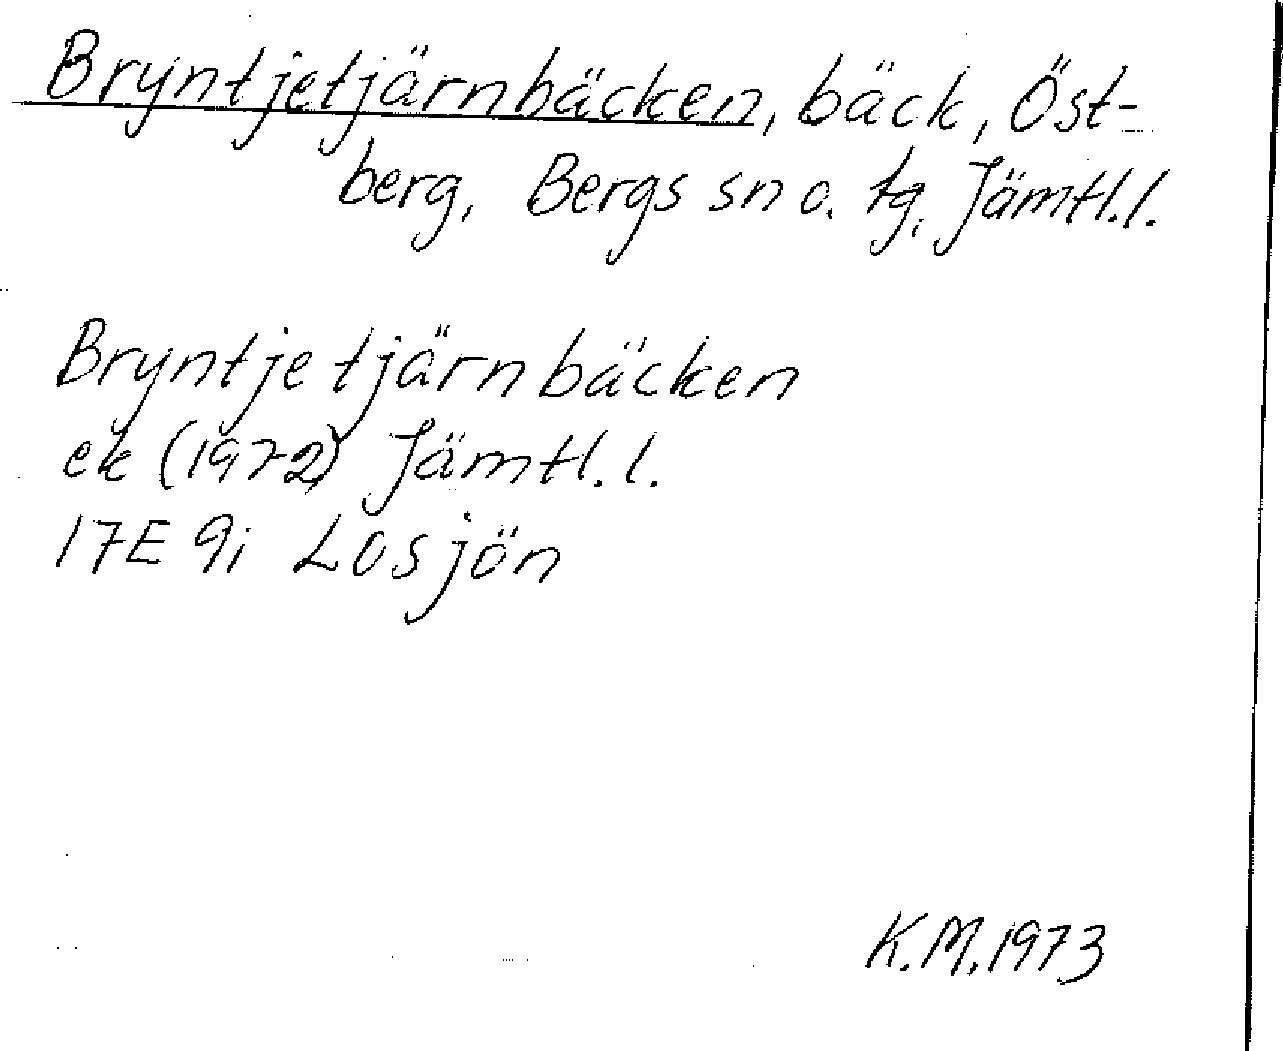 Bryntjetjärnbäcken, bäck, Öst-
berg, Bergs sn o. tg, Jämtl.l.
Bryntjetjärnbäcken
ek (1972) Jämtl.l.
17E 9i Losjön
K.M.1973